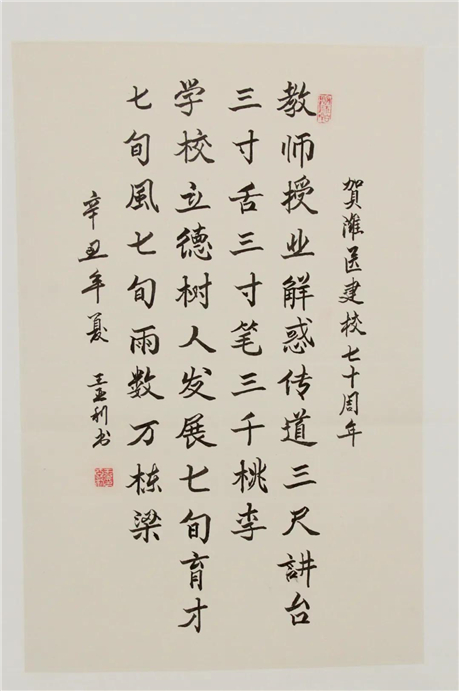 賀潍医建校七十周年
教师授业解惑传道三尺讲台
三寸舌三寸笔三千桃李
学校立德树人发展七旬育才
七旬風七旬雨数万栋梁
辛丑年夏 王亚利书